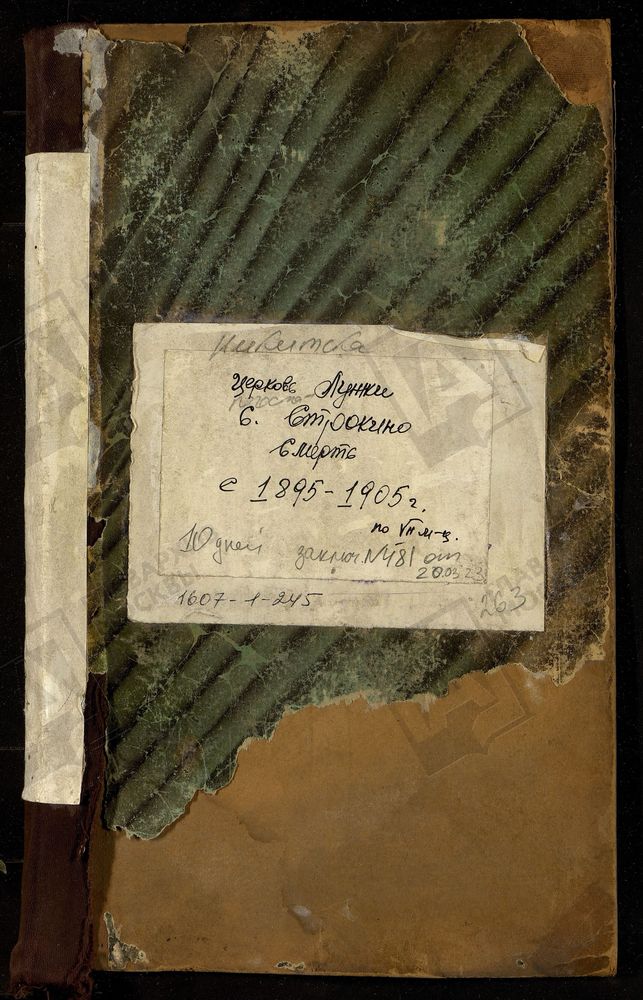 Никитска
церковь Лужки
погоста
с. Строкино
Смерть
с 1895-1905 г.
по VII м-ц.
10 дней заключ. № 181 от
20.03.23
1607-1-245
263